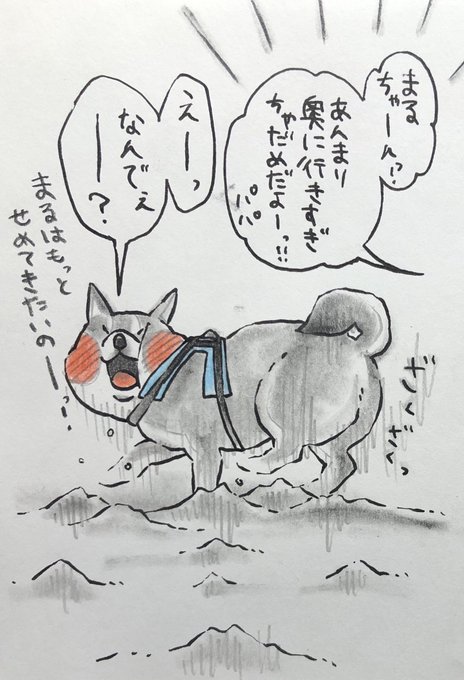 まる
ちゃーんっ
あんまり
奥に行きすぎ
ちゃだめだよーっ!!
パパ
えーっ
なんでぇ
ーー?
まるはもっと
せめてきたいのーーっ!
ざくざくっ